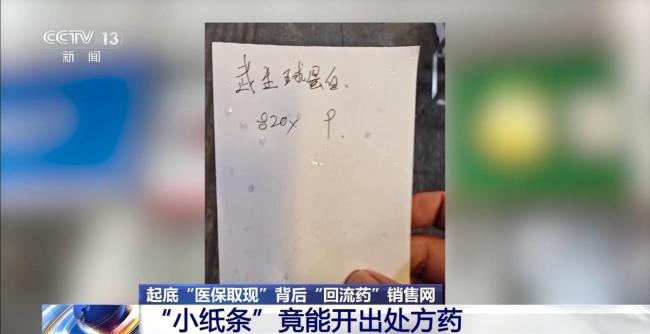 CCTV 13
新闻
球蛋白.
820x
起底“医保取现”背后“回流药”销售网
“小纸条”竟能开出处方药